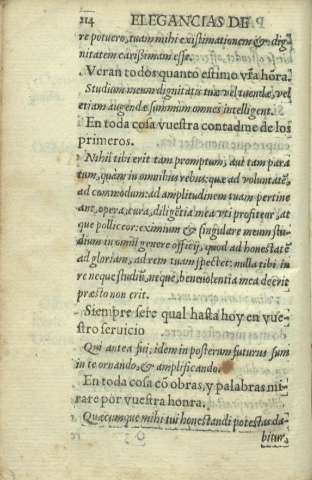 214 ELEGANCIAS DE
re potuero, tuam mihi existimationem & dig-
nitatem carissimam esse.
Veran todos quanto estimo vr̃a hõra.
Studium meum dignitatis tuæ vel tuendæ, vel
etiam augendæ summùm omnes intelligent.
En toda cosa vuestra contadme de los
primeros.
Nihil tibi erit tam promptum, aut tam para
tum, quàm in omnibus rebus: quæ ad voluntatẽ,
ad commodum: ad amplitudinem tuam pertine
ant, opera, cura, diligẽtia mea vti profiteor, at
que polliceor: eximium & singulare meum stu-
dium in omni genere officij, quod ad honestatẽ
ad gloriam, ad rem tuam spectet: nulla tibi in
re neque studiũ, neque, beneuolentia mea deerit
præsto non erit.
Siempre sere qual hasta hoy en vue-
stro seruicio
Qui antea fui, idem in posterum futurus sum
in te ornando, & amplificando.
En toda cosa cõ obras, y palabras mi-
rare por vuestra honra.
Quæcumque mihi tui honestandi potestas da-
bitur,